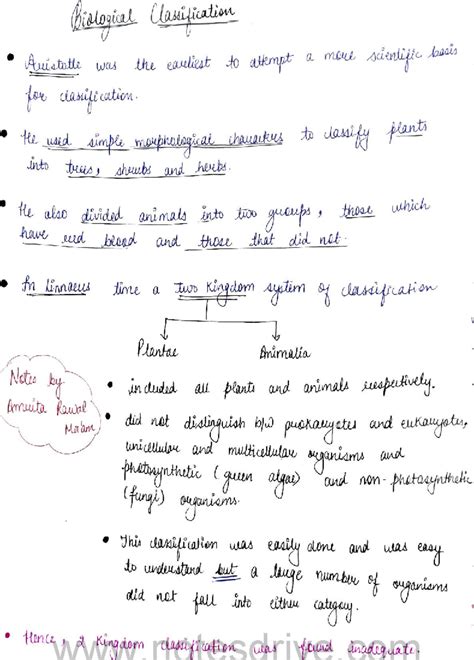 Biological Classification
• Aristotle was the earliest to attempt a more scientific basis
for classification.
• He used simple morphological characters to classify plants
into trees, shrubs and herbs.
• He also divided animals into two groups, those which
have red blood and those that did not.
• In Linnaeus time a two kingdom system of classification
Plantae Animalia
Notes by
Amrita Rawal
Ma'am
• included all plants and animals respectively.
• did not distinguish b/w prokaryotes and eukaryotes,
unicellular and multicellular organisms and
photosynthetic (green algae) and non-photosynthetic
(fungi) organisms.
• This classification was easily done and was easy
to understand but a large number of organisms
did not fall into either category.
• Hence, 2 kingdom classification was found inadequate.
www.notesdrive.com